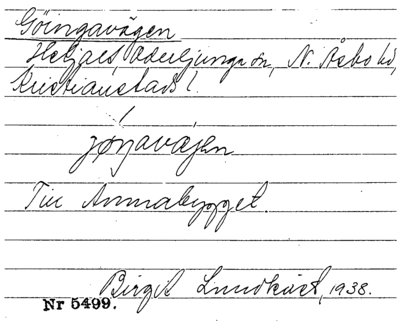 Göingavägen
Heljalt, Örkelljunga sn, N. Åsbo hd,
Kristianstads l.
jøŋavægen
Till Annabygget.
Birgit Lundkvist, 1938.
Nr 5499.